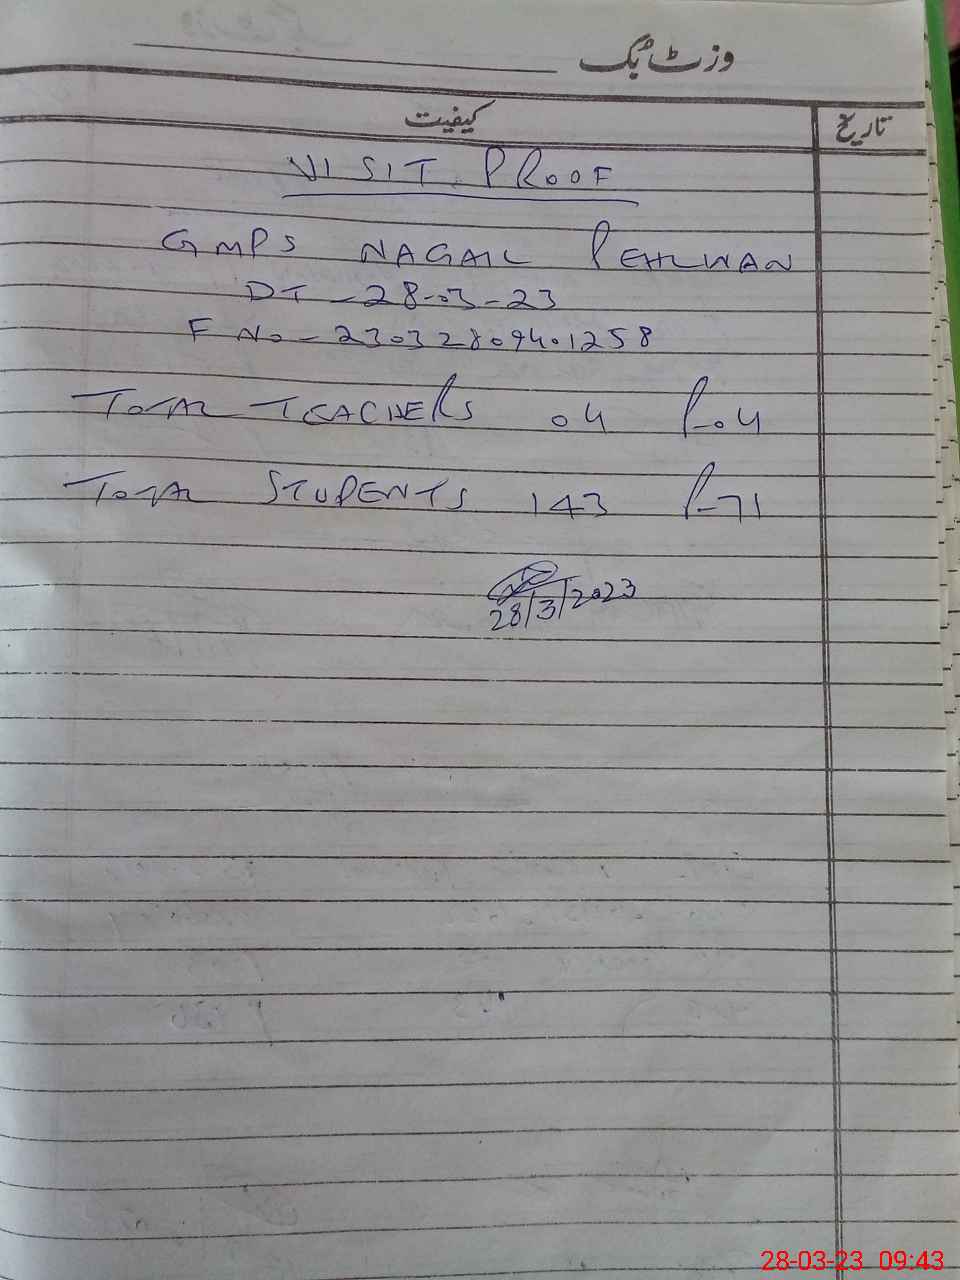 وزٹ بک
تاریخ کیفیت
VISIT PROOF
GMPS NAGAIL PEHLWAN
DT - 28-03-23
F No - 23032809401258
TOTAL TEACHERS 04 P-04
TOTAL STUDENTS 143 P-71
28/3/2023
28-03-23 09:43